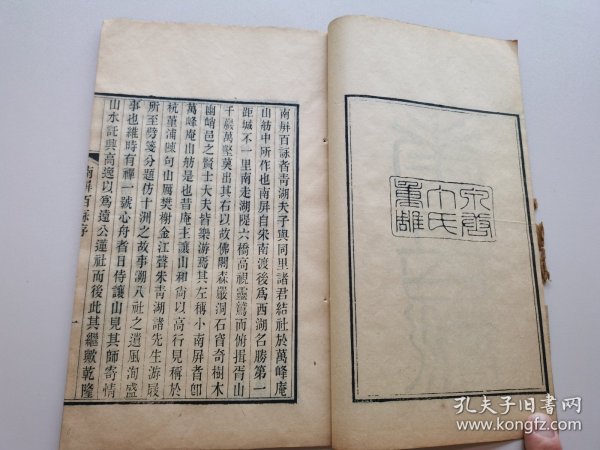 六善
丁氏
重雕
南屏百詠者靑湖夫子與同里諸君結社於萬峰庵
山舫中所作也南屏自宋南渡後爲西湖名勝第一
距城不一里南走湖隄六橋高視靈鷲而俯揖胥山
千巖萬壑莫出其右以故佛閣森嚴洞石窅奇樹木
幽峭邑之賢士大夫皆樂游焉其左稱小南屏者卽
萬峰庵山舫是也昔庵主讓山和尙以高行見稱於
杭菫浦陳句山厲樊榭金江聲朱靑湖諸先生游屐
所至劈箋分題仿十洲之故事溯八社之遺風洵盛
事也維時有禪一號心舟者日侍讓山見其師寄情
山水託興高逸以爲遠公蓮社而後此其繼歟乾隆
南屏百詠序
一
孔夫子旧书网
www.kongfz.com